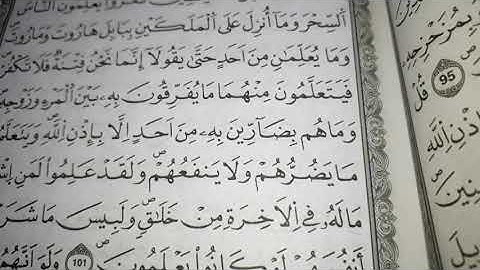 يُعَلِّمُونَ النَّاسَ
السِّحْرَ وَمَا أُنْزِلَ عَلَى الْمَلَكَيْنِ بِبَابِلَ هَارُوتَ وَمَارُوتَ
وَمَا يُعَلِّمَانِ مِنْ أَحَدٍ حَتَّى يَقُولَا إِنَّمَا نَحْنُ فِتْنَةٌ فَلَا تَكْفُرْ
فَيَتَعَلَّمُونَ مِنْهُمَا مَا يُفَرِّقُونَ بِهِ بَيْنَ الْمَرْءِ وَزَوْجِهِ
وَمَا هُمْ بِضَارِّينَ بِهِ مِنْ أَحَدٍ إِلَّا بِإِذْنِ اللَّهِ وَيَتَعَلَّمُ
مَا يَضُرُّهُمْ وَلَا يَنْفَعُهُمْ وَلَقَدْ عَلِمُوا لَمَنِ اشْ
مَا لَهُ فِي الْآخِرَةِ مِنْ خَلَاقٍ وَلَبِئْسَ مَا شَرَ
أَنْفُسَهُمْ لَوْ كَانُوا يَعْلَمُونَ 101 وَلَوْ أَنَّهُمْ
بِمُزَحْزِحِهِ
95 قُلْ
بِإِذْنِ اللَّهِ